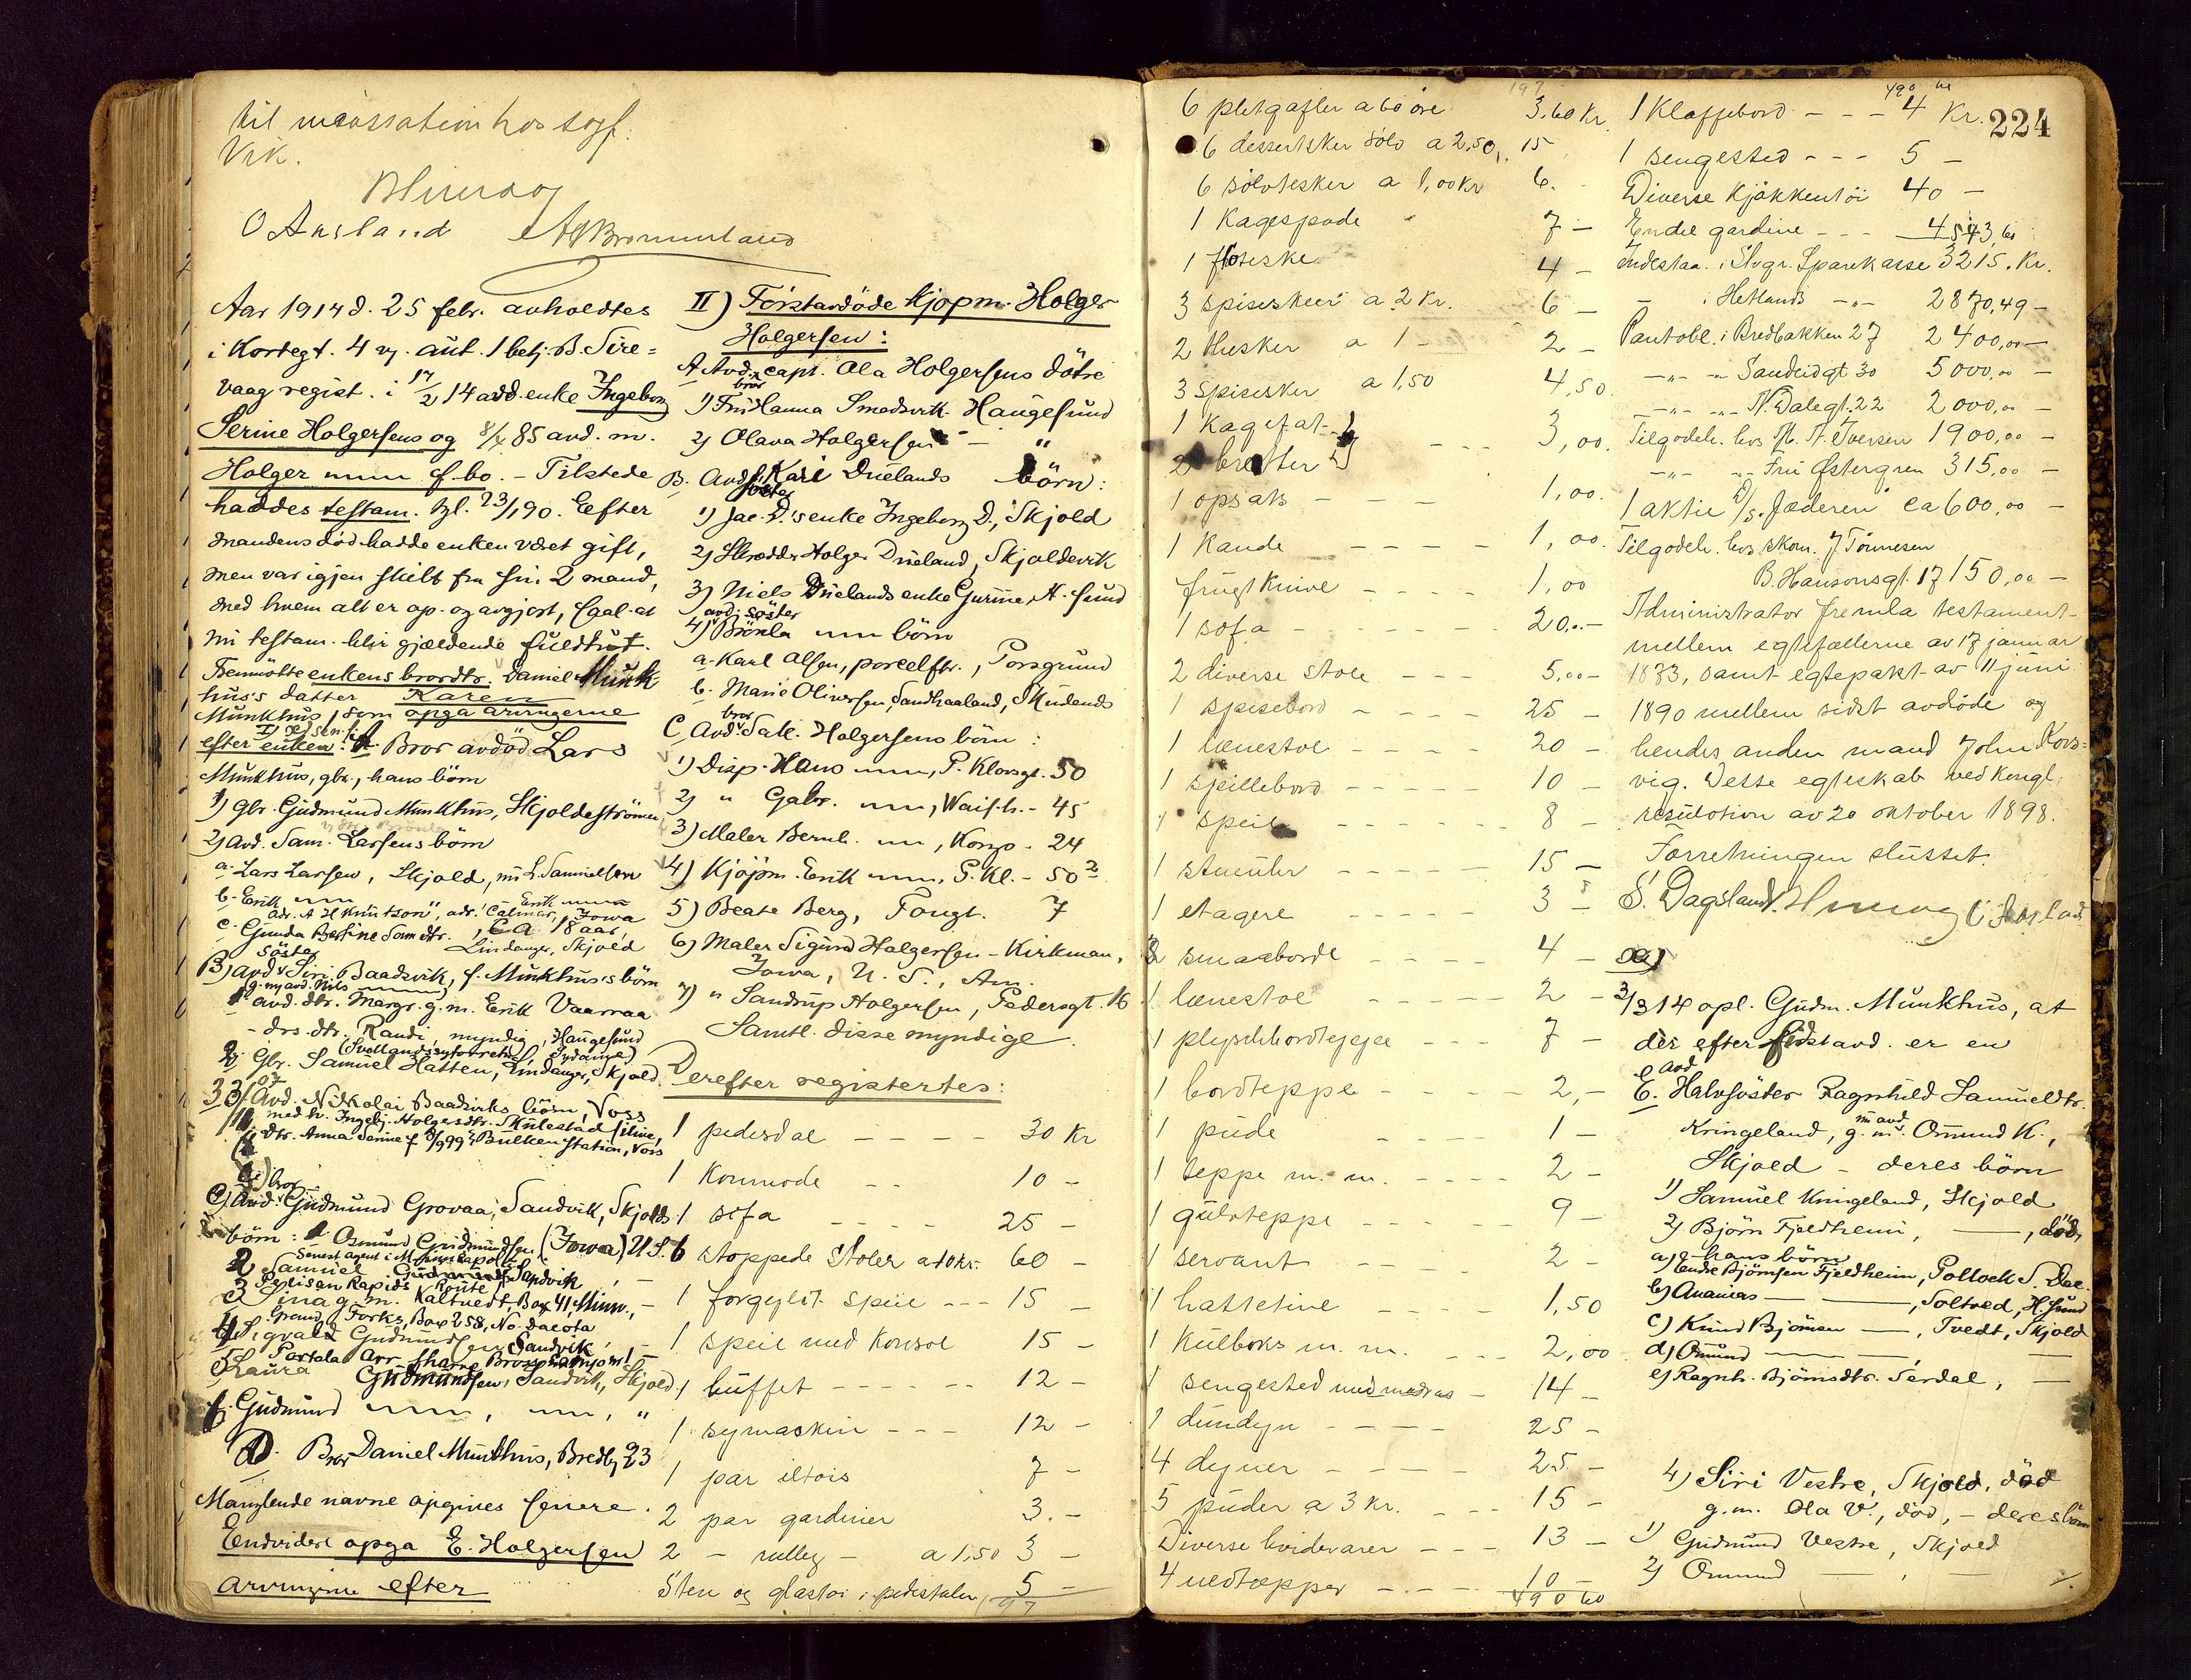 til
Vik.
O Ausland
Aar 1914 d. 25 febr. avholdtes
i Kortegt. 4 vj. aut. 1 betj. B. Sire=
vaag regist. i 17/2 14 avd. enke Ingeborg
Serine Holgersens og 8/4 85 avd. m.
Holger f. bo. - Tilstede
haddes testam. tgl. 23/1 90. Eefter
mandens död hadde enken været gift,
men var igjen skilt fra sin 2 mand,
med hvem alt er op. og avgjort, saal. at
testam. blir gjældende fuldtut.
Fremmötte enkens brordtr. Daniel Munk
hus's datter Karen
Munkhus, som opga arvingerne
efter enken: A. Bror avdöd Lars
Munkhus, gbr., hans börn
1) Gbr. Gudmund Munkhus, Skjoldeströmen
2) Avd. Sam. Larsens börn
a. Lars Larsen, Skjold,
b. Erik
adr. A H Knutson", adr. Calmar, Iowa
c. Gunda Bertine Samdtr., ca 18 aar,
Lindanger, Skjold
söster
B) Avd. Siri Baadsvik, f. Munkhus's börn
avd. dtr. Margr. g.m. Erik Vaarraa
- drs. dtr. Randi, myndig, Haugesund
2. Gbr. Samuel Hatten, Lindanger, Skjold
3) Avd. Nikolai Baadsviks börn, Voss
med h. Ingebj. Holgersdtr. Skulestad
dtr. Anna Serine f. 8/9 99, Bulken Station, Voss
bror
C) Avd. Gudmund Grovaa, Sandvik, Skjolds
börn: 1 Osmund Gudmundsen (Iowa) U S.
Senest agent i Minneapolis
2 Samuel Gudmundsen Sandvik
Pelisan Rapids Route
3 Sina g. m. Kaltvedt, Box 41, Minn.,
Grand Forks, Box 258, No. Dacota
4 Sigvald Gudmundsen Sandvik
5 Laura Gudmundsen, Sandvik, Skjold
6. Gudmund "
D. Bror Daniel Munkhus, Bredbg 23
Manglende navne opgives senere.
Eendvidere opga E. Holgersen
arvingerne efter
II) Förstavdöde Kjöpm. Holger
Holgersen:
A Avd. bror capt. Ola Holgersens dötre
1) Fru Hanna Smedsvik - Haugesund
2) Olava Holgersen - "
B. Avd. söster Kari Duelands börn:
1) Jac. D.'s enke Ingeborg D., Skjold
2) Skrædder Holger Dueland, Skjoldevik
3) Niels Duelands enke Gurine, H.sund
avd. söster
4) Brönla börn
a. Karl Olsen, porcelfbr., Porsgrund
b. Marie Oliversen, Sandhaaland, Skudenes
bror
C. Avd. Sak. Holgersens börn:
1) Disp. Hans P. Klowsgt. 50
2) " Gabr. Waish. - 45
3) Maler Bernh. Kongsg. 24
4) Kjöpm. Erik P. Kl. - 50 2
5) Beate Berg, Fougt. 7
6) Maler Sigurd Holgersen - Kirkman,
Iowa, U. S., Am.
7) " Sandrup Holgersen, Pedersgt. 16
Samtl. disse myndige.
Derefter registertes:
1 pedesdal - - - 30 Kr
1 Kommode - - 10 -
1 sofa - - - 25 -
6 stoppede Stoler a 10 kr. 60 -
1 forgyldt speil - - - 15 -
1 speil med Konsol 15 -
1 buffet - - - 12 -
1 symaskin - - - 12 -
1 par iltois 7 -
2 par gardiner 3. -
2 - rulleg - a 1,50 3 -
Sten og glastöi i pedestalen 5 -
97
197
6 pletgafler a 60 öre 3.60 Kr.
6 dessertsker sölv a 2,50, 15
6 sölvtesker a 1,00 kr 6.
1 Kagespade 7 -
1 flöteske 4 -
3 spiseskeer a 2 Kr. 6 -
2 thesker a 1 - 2 -
3 spisesker a 1,50 4,50.
1 Kagefat
2 bretter - - - 3,00.
1 opsats - - - 1,00.
1 Kande - - - - 1,00.
frugtknive - - - - 1,00
1 sofa - - - 20.. -
2 diverse Stole - - - 5.00 -
1 spisebord - - - - 25 -
1 lænestol - - - - 20 -
1 spillebord - - - 10 -
1 speil - - - - - 8 -
1 stueuhr - - - - 15 -
1 etagere - - - - 3 -
2 smaaborde - - - - 4 -
1 lænestol - - - - 2 -
1 plyschbordteppe - - - 7 -
1 bordteppe - - - - 2,-
1 pude - - - - 1 -
1 teppe m. m. - - - - 2 -
1 gulvteppe - - - - 9 -
1 servant - - - 2 -
1 hattetine - - - - 1,50
1 Kulboks m. m. - - - 2,00
1 sengested med madras - 14 -
1 dundyn - - - - 25 -
4 dyner - - - - 25 -
5 puder a 3 Kr. - - 15 -
Diverse hvidevarer - - - 13 -
4 uldtepper - - - 10 -
490 60
490
1 Klaffebord - - - 4 Kr. 224
1 sengested - - - 5 -
Diverse Kjökkentöi 40 -
Endel gardine - - - 4
543,60
Indestaa. i Stvgr. Sparekasse 3215. Kr.
- i Hetlands -"- 2870,49 -
Pantobl. i Bredbakken 27 2400,00 -
-"- - Sandeidgt 30 5000,00 -
-"- -"- N. Dalegt. 22 2000,00 -
Tilgodeh. hos N. Iversen 1900,00 -
-"- -"- Fru Østergren 315,00 -
1 aktie D/S. Jæderen ca 600,00 -
Tilgodeh. hos skom. J Tönnesen
B. Hansensgt. 17 150,00 -
Administrator fremla testament
mellem egtefællerne av 17 januar
1883, samt egtepakt av 11 juni
1890 mellem sidst avdöde og
hendes anden mand John Kors=
vig. Dette egteskab ved Kongl.
resulotion av 20 oktober 1898.
Forretningen sluttet.
S. Dagsland.
3/3 14 opl. Gudm. Munkhus, at
der efter sidstavd. er en
avd
E. Halvsöster Ragnhild Samueldtr.
Kringeland, g. m. nu avd. Omund K.,
Skjold - deres börn
1) Samuel Kringeland, Skjold
2) Björn Fjeldheim, -, död,
- hans börn
a) Endre Björnsen Fjeldheim, Pollock S. Dac.
b) Ananias - -, Soltved, H.sund
c) Knud Björnsen -, Tvedt, Skjold
d) Omund - -, -
e) Ragnh. Björnsdtr. Særdal, -
4) Siri Vestre, Skjold, död
g.m. Ola V., död, - deres börn
1) Gudmund Vestre, Skjold
2) Omund - , -